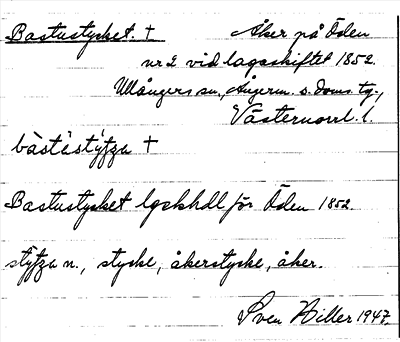 Bastustycket. † Åker på Öden
nr 2 vid lagaskiftet 1852.
Ullångers sn., Ångerm. s. doms. tg.,
Västernorrl. l.
bàstùstýʒa †
Bastustycket lgskhdl för Öden 1852.
n., stycke, åkerstycke, åker.
Sven Hiller 1947.